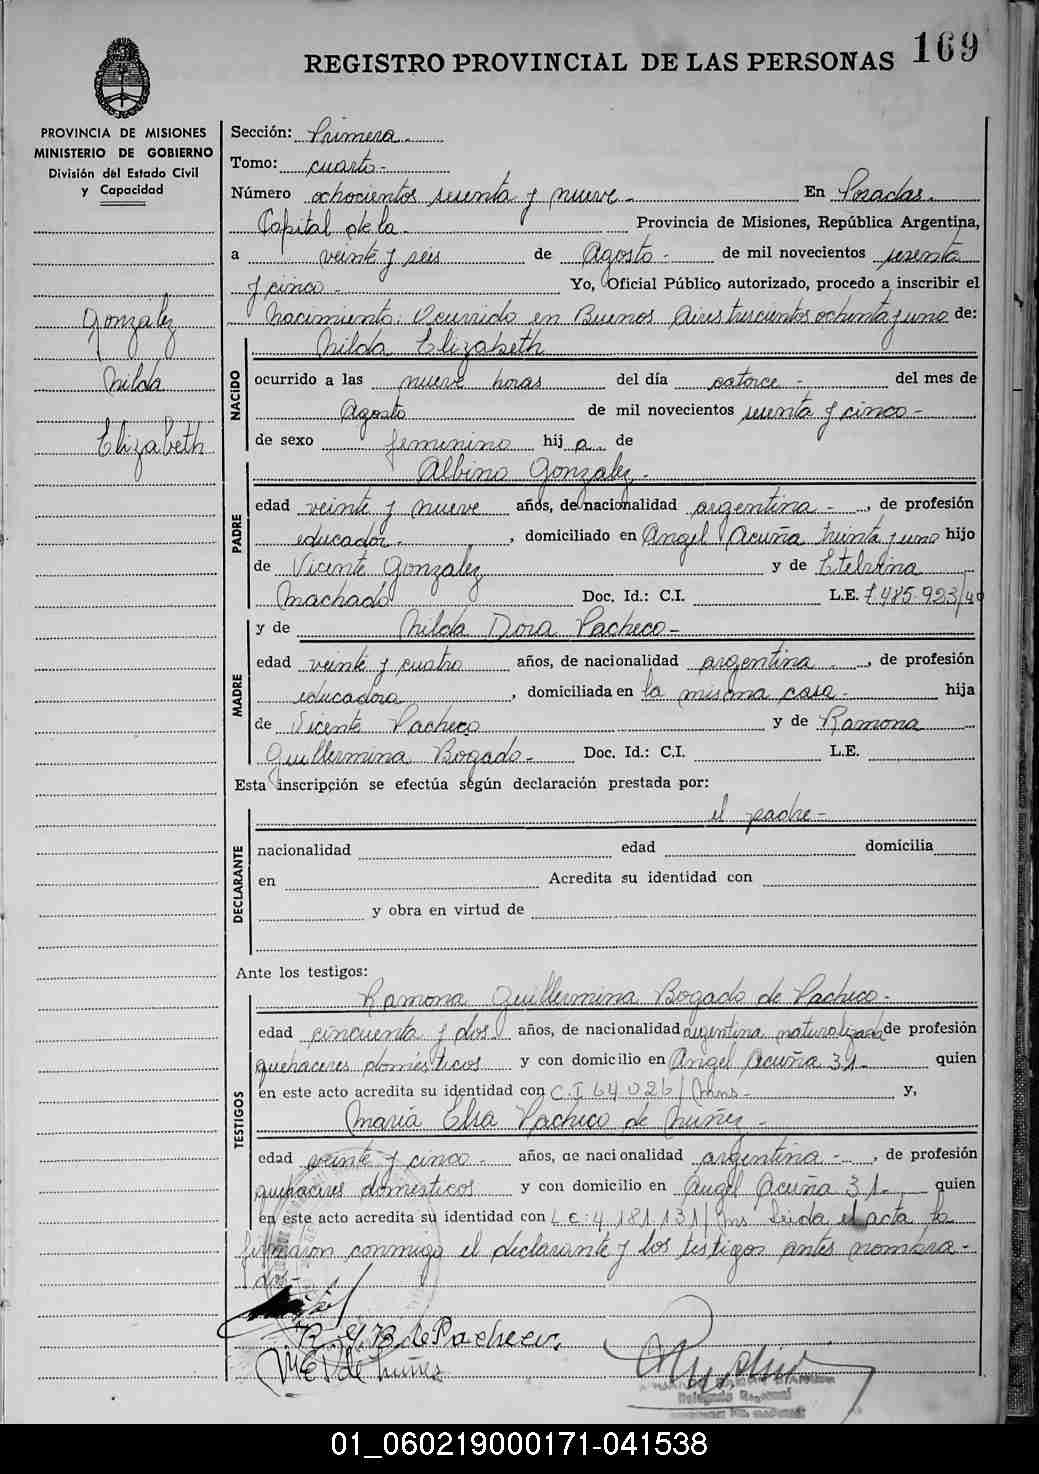 169
REGISTRO PROVINCIAL DE LAS PERSONAS
PROVINCIA DE MISIONES
MINISTERIO DE GOBIERNO
División del Estado Civil
y Capacidad
Gonzalez
Nilda
Elizabeth
Sección: Primera.
Tomo: cuarto-
Número ochocientos sesenta y nueve- En Posadas.
Capital de la. Provincia de Misiones, República Argentina,
a veinte y seis de Agosto- de mil novecientos sesenta
y cinco- Yo, Oficial Público autorizado, procedo a inscribir el
Nacimiento: Ocurrido en Buenos Aires trescientos ochenta y uno de:
NACIDO
Nilda Elizabeth
ocurrido a las nueve horas del día catorce- del mes de
Agosto de mil novecientos sesenta y cinco-
de sexo femenino hij a. de
PADRE
Albino Gonzalez-
edad veinte y nueve años, de nacionalidad argentina-, de profesión
educador., domiciliado en Angel Acuña treinta y uno hijo
de Vicente Gonzalez y de Etelvina
Machado Doc. Id.: C.I. L.E. 7.485.923/40
MADRE
y de Nilda Dora Pacheco-
edad veinte y cuatro años, de nacionalidad argentina., de profesión
educadora, domiciliada en la misma casa- hija
de Vicente Pacheco y de Ramona
Guillermina Bogado- Doc. Id.: C.I. L.E.
Esta inscripción se efectúa según declaración prestada por:
DECLARANTE
el padre-
nacionalidad edad domicilia
en Acredita su identidad con
y obra en virtud de
Ante los testigos:
TESTIGOS
Ramona Guillermina Bogado de Pacheco-
edad cincuenta y dos años, de nacionalidad argentina naturalizada de profesión
quehaceres domésticos y con domicilio en Angel Acuña 31- quien
en este acto acredita su identidad con C.I 64026/Mns- y,
María Elsa Pacheco de Nuñez-
edad veinte y cinco- años, de nacionalidad argentina-, de profesión
quehaceres domesticos y con domicilio en Angel Acuña 31- quien
en este acto acredita su identidad con L.E: 4.181.131/Mns Leida el acta la
firmaron conmigo el declarante y los testigos antes nombra-
dos-
R. G. B de Pacheco,
M E P de Nuñez
Delegado Regional
01_060219000171-041538